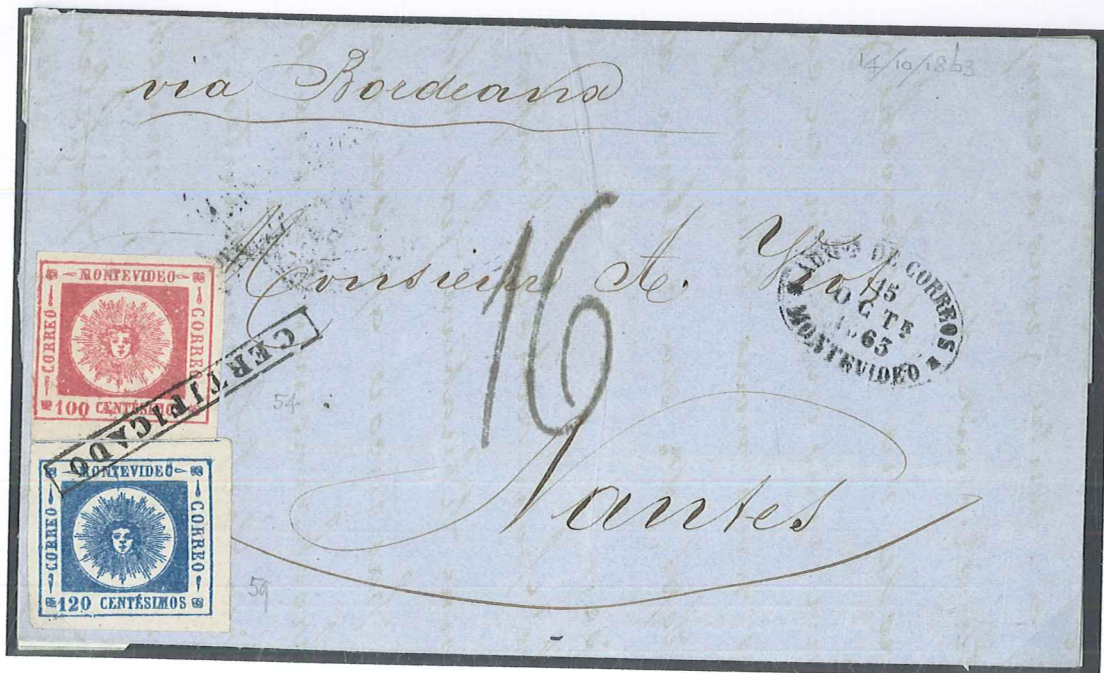 via Bordeaux
14/10/1863
Monsieur A.
16
ADMON DE CORREOS
15
OCTE
1863
MONTEVIDEO
MONTEVIDEO
CORREO
CORREO
100 CENTÉSIMOS
CERTIFICADO
54
Nantes
MONTEVIDEO
CORREO
CORREO
120 CENTÉSIMOS
59